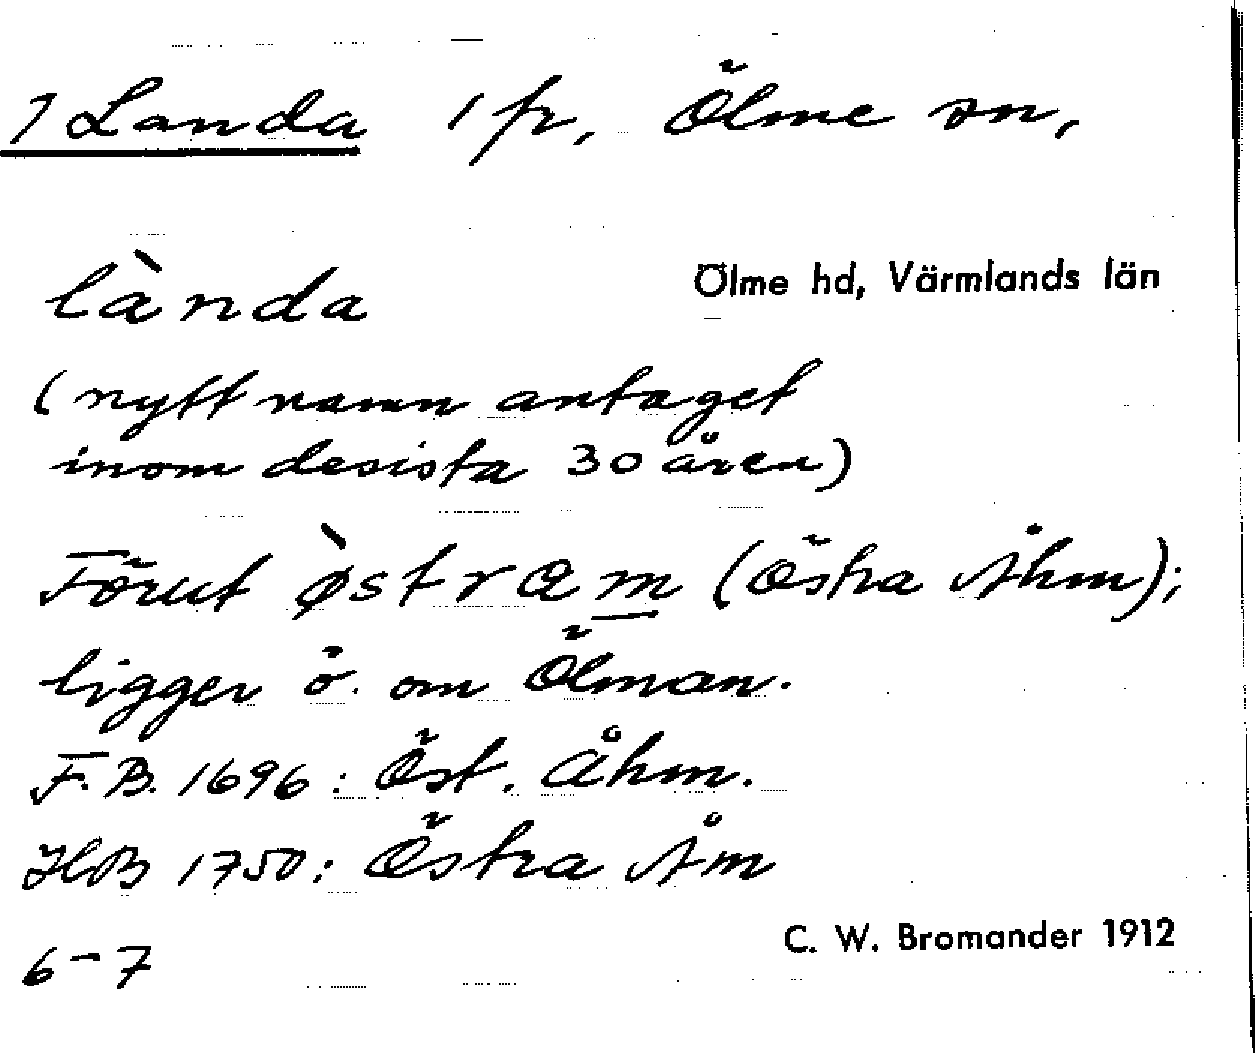 1 Landa 1 fr, Ölme sn,
Ölme hd, Värmlands län
là̀nda
(nytt namn antaget
inom de sista 30 åren)
Förut ø̀stram (Östra Åhm);
ligger ö. om Ölman.
F.B. 1696: Öst. Åhm.
HB 1750: Östra Åm
6-7
C. W. Bromander 1912